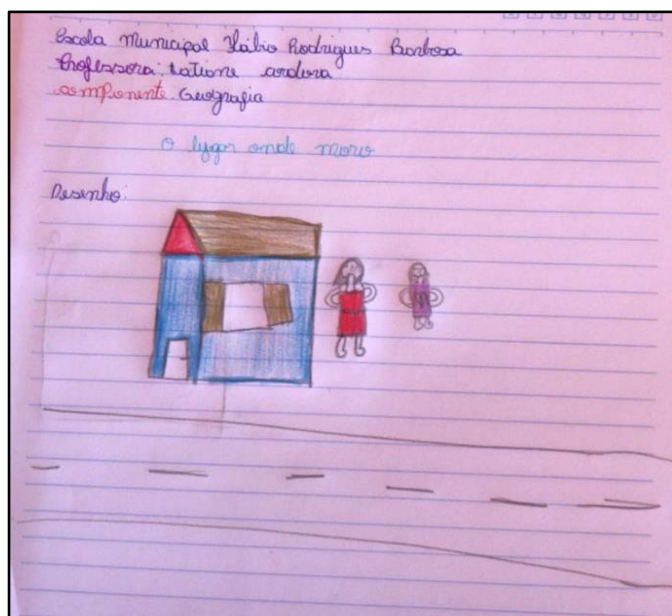 Escola Municipal Flábio Rodrigues Barbosa
Professora: Tatiane
componente Geografia
O lugar onde moro
Desenho: